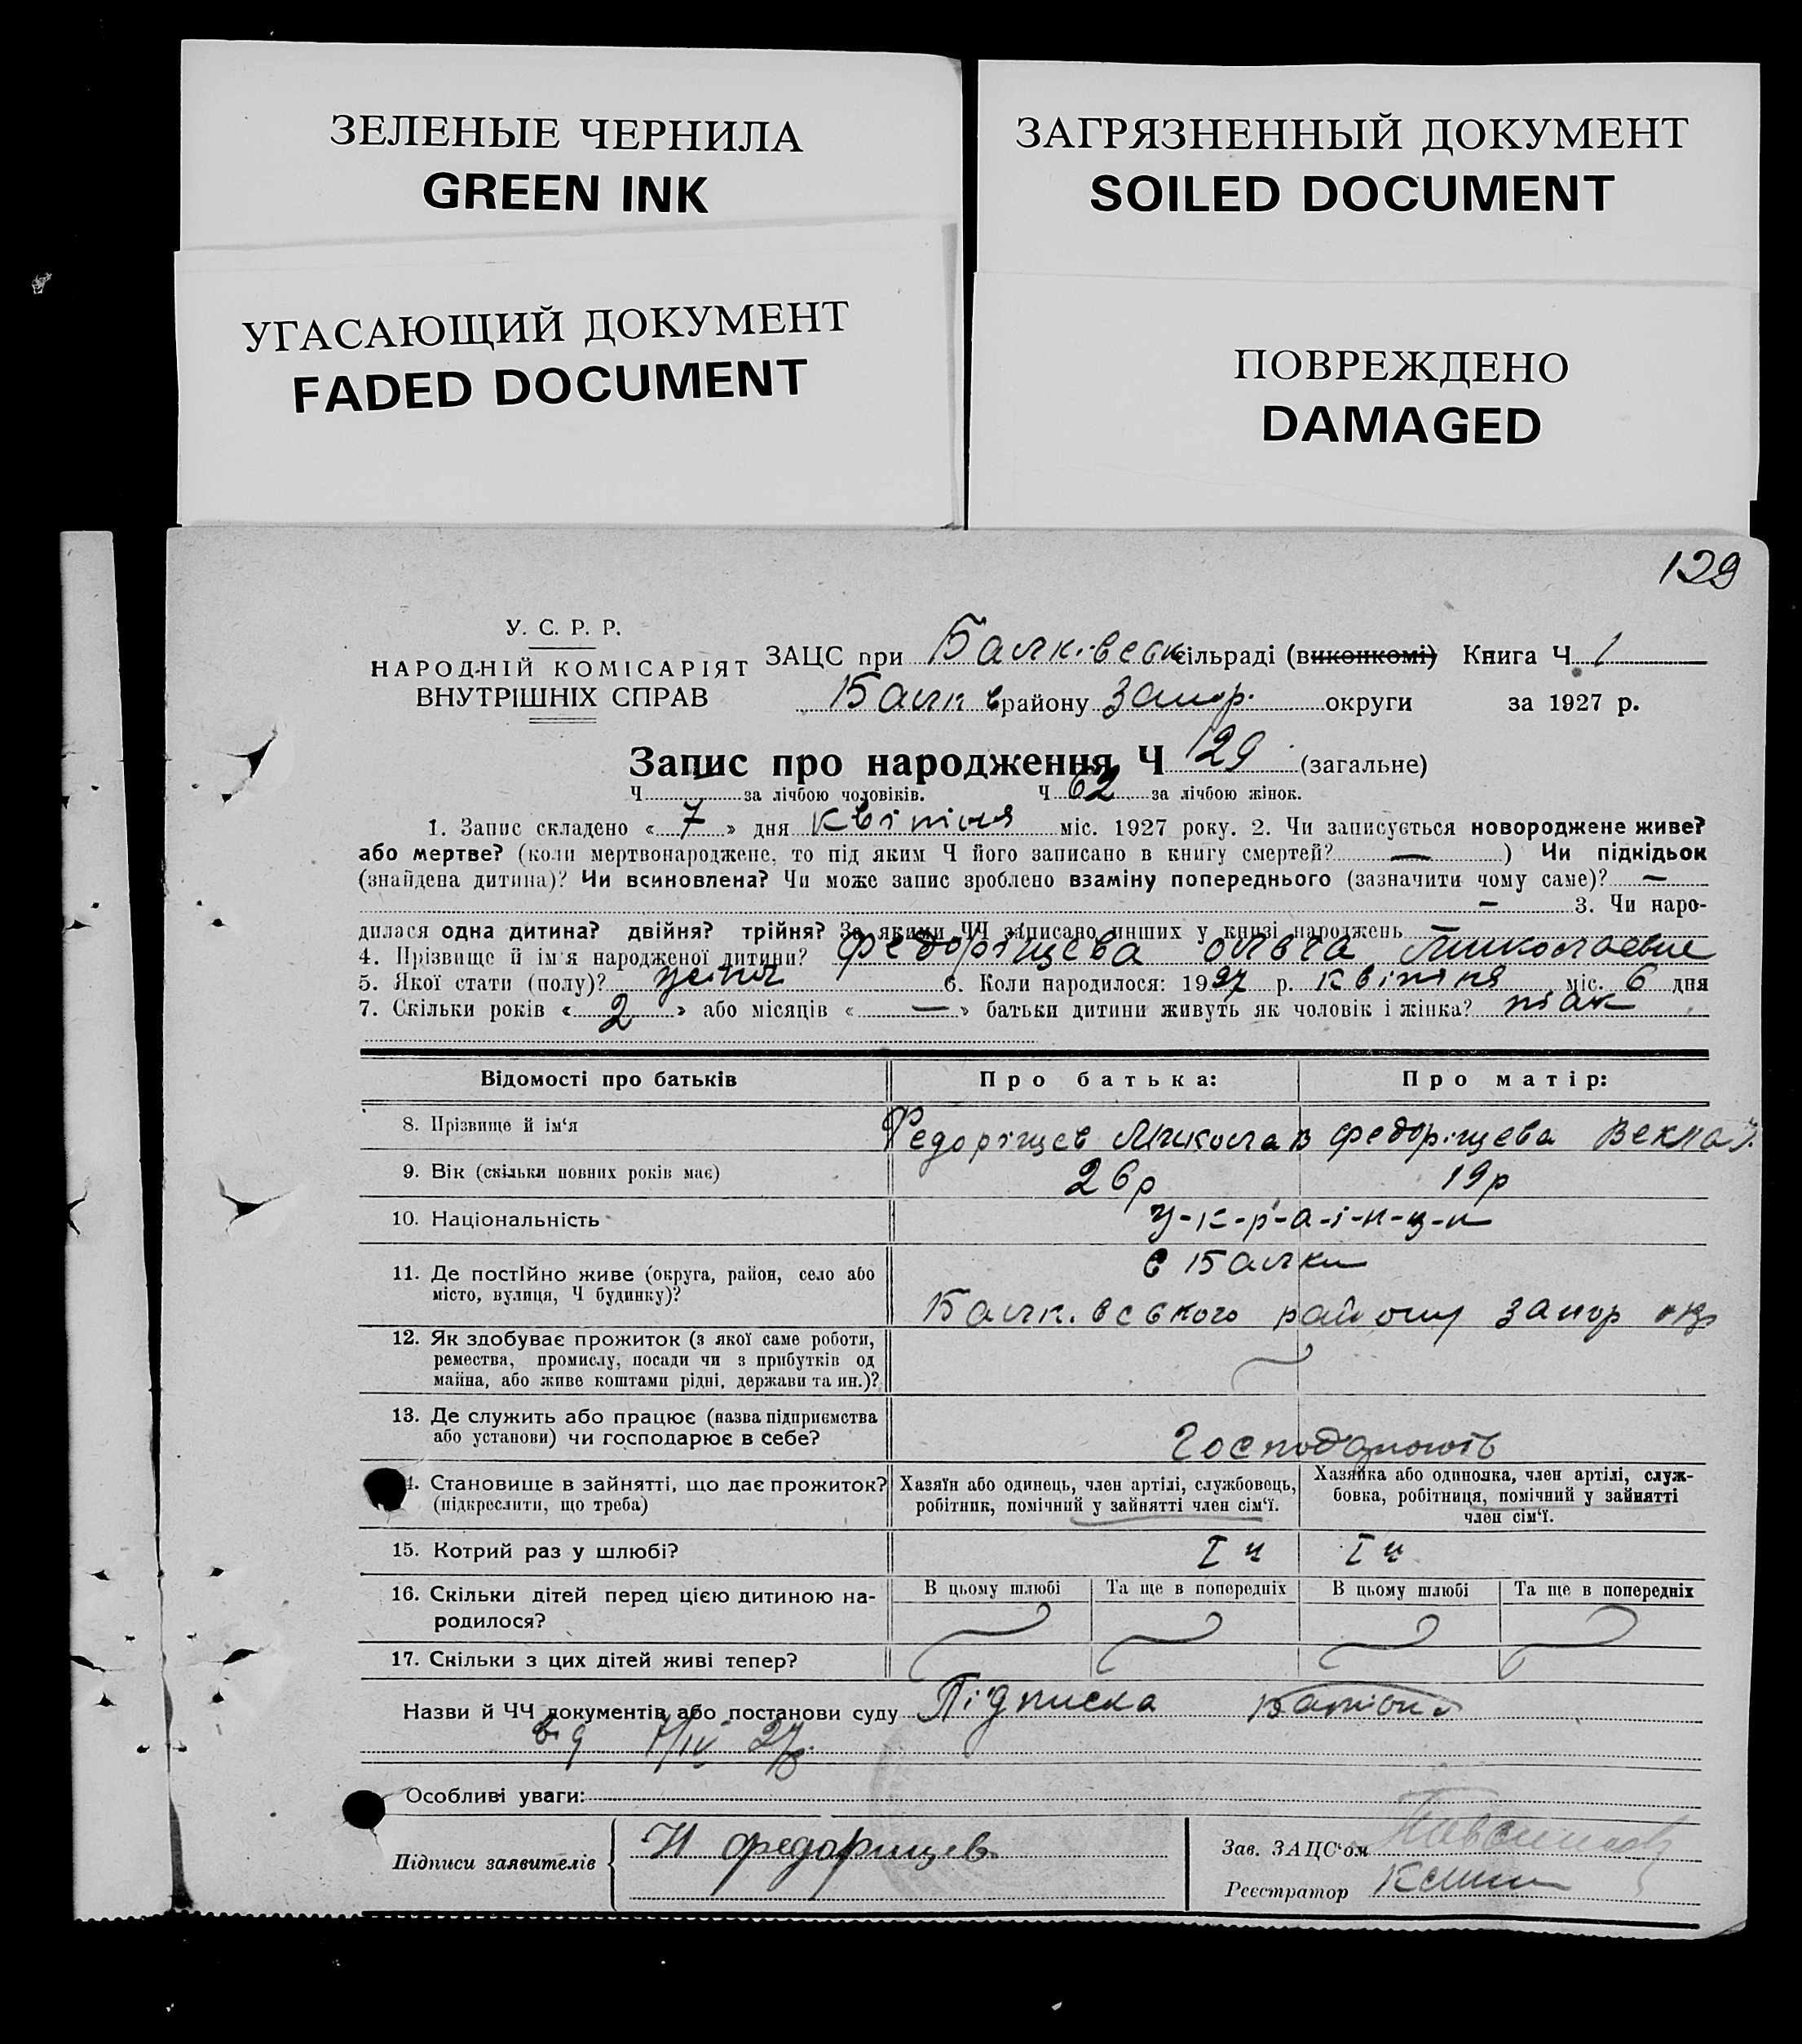 ЗЕЛЕНЫЕ ЧЕРНИЛА
GREEN INK
ЗАГРЯЗНЕННЫЙ ДОКУМЕНТ
SOILED DOCUMENT
УГАСАЮЩИЙ ДОКУМЕНТ
FADED DOCUMENT
ПОВРЕЖДЕНО
DAMAGED
129
У. С. Р. Р.
НАРОДНІЙ КОМІСАРІЯТ
ВНУТРІШНІХ СПРАВ
ЗАЦС при Балківськ сільраді (виконкомі) Книга Ч. 1
Балків району Запор. округи за 1927 р.
Запис про народження Ч 129 (загальне)
Ч. — за лічбою чоловіків. Ч 62 за лічбою жінок.
1. Запис складено « 7 » дня квітня міс. 1927 року. 2. Чи записується новороджене живе?
або мертве? (коли мертвонароджене, то під яким Ч його записано в книгу смертей? — ) Чи підкідьок
(знайдена дитина)? Чи всиновлена? Чи може запис зроблено взаміну попереднього (зазначити чому саме)? —
— 3. Чи наро-
дилася одна дитина? двійня? трійня? За якими ЧЧ записано инших у книзі народжень
4. Прізвище й ім'я народженої дитини? Федоріщева Ольга Миколаевне
5. Якої стати (полу)? жіноч 6. Коли народилося: 1927 р. квітня міс. 6 дня
7. Скільки років « 2 » або місяців « — » батьки дитини живуть як чоловік і жінка? так
Відомості про батьків Про батька: Про матір:
8. Прізвище й ім'я Федоріщев Микола В Федоріщева Векла У.
9. Вік (скільки повних років має) 26р 19р
10. Національність у-к-р-а-і-н-ц-и
11. Де постійно живе (округа, район, село або
місто, вулиця, Ч будинку)?
с Балки
Балківського району Запор окр
12. Як здобуває прожиток (з якої саме роботи,
ремества, промислу, посади чи з прибутків од
майна, або живе коштами рідні, держави та ин.)?
13. Де служить або працює (назва підприємства
або установи) чи господарює в себе?
Господарюють
14. Становище в зайнятті, що дає прожиток?
(підкреслити, що треба)
Хазяїн або одинець, член артілі, службовець,
робітник, помічний у зайнятті член сім'ї.
Хазяйка або одиночка, член артілі, служ-
бовка, робітниця, помічний у зайнятті
член сім'ї.
15. Котрий раз у шлюбі? І й І й
16. Скільки дітей перед цією дитиною на-
родилося?
В цьому шлюбі Та ще в попередніх В цьому шлюбі Та ще в попередніх
17. Скільки з цих дітей живі тепер?
Назви й ЧЧ документів або постанови суду Підписка
від 7/IV 27р.
Особливі уваги:
Підписи заявителів Н Федорищев
Зав. ЗАЦС'ом
Реєстратор